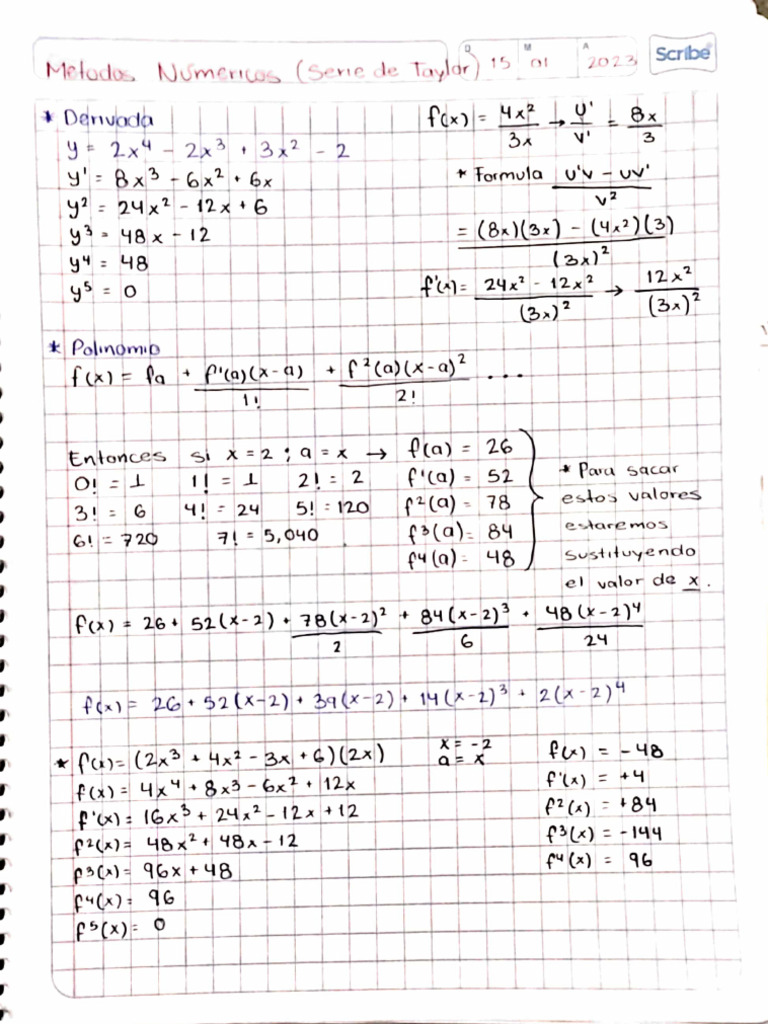 Metodos Numericos (Serie de Taylor)
D 15 M 01 A 2023
Scribe
* Derivada
y = 2x⁴ - 2x³ + 3x² - 2
y' = 8x³ - 6x² + 6x
y² = 24x² - 12x + 6
y³ = 48x - 12
y⁴ = 48
y⁵ = 0
f(x) = 4x²/3x → U'/V' = 8x/3
* Formula (U'V - UV')/V²
= ((8x)(3x) - (4x²)(3))/(3x)²
f'(x) = (24x² - 12x²)/(3x)² → 12x²/(3x)²
* Polinomio
f(x) = fa + f'(a)(x-a)/1! + f²(a)(x-a)²/2! ...
Entonces si x = 2 ; a = x →
0! = 1 1! = 1 2! = 2
3! = 6 4! = 24 5! = 120
6! = 720 7! = 5,040
f(a) = 26
f'(a) = 52
f²(a) = 78
f³(a) = 84
f4(a) = 48
* Para sacar
estos valores
estaremos
sustituyendo
el valor de x.
f(x) = 26 + 52(x-2) + 78(x-2)²/2 + 84(x-2)³/6 + 48(x-2)⁴/24
f(x) = 26 + 52(x-2) + 39(x-2) + 14(x-2)³ + 2(x-2)⁴
* f(x) = (2x³ + 4x² - 3x + 6)(2x)
f(x) = 4x⁴ + 8x³ - 6x² + 12x
f'(x) = 16x³ + 24x² - 12x + 12
f²(x) = 48x² + 48x - 12
f³(x) = 96x + 48
f4(x) = 96
f⁵(x) = 0
x = -2
a = x
f(x) = -48
f'(x) = +4
f²(x) = +84
f³(x) = -144
f4(x) = 96